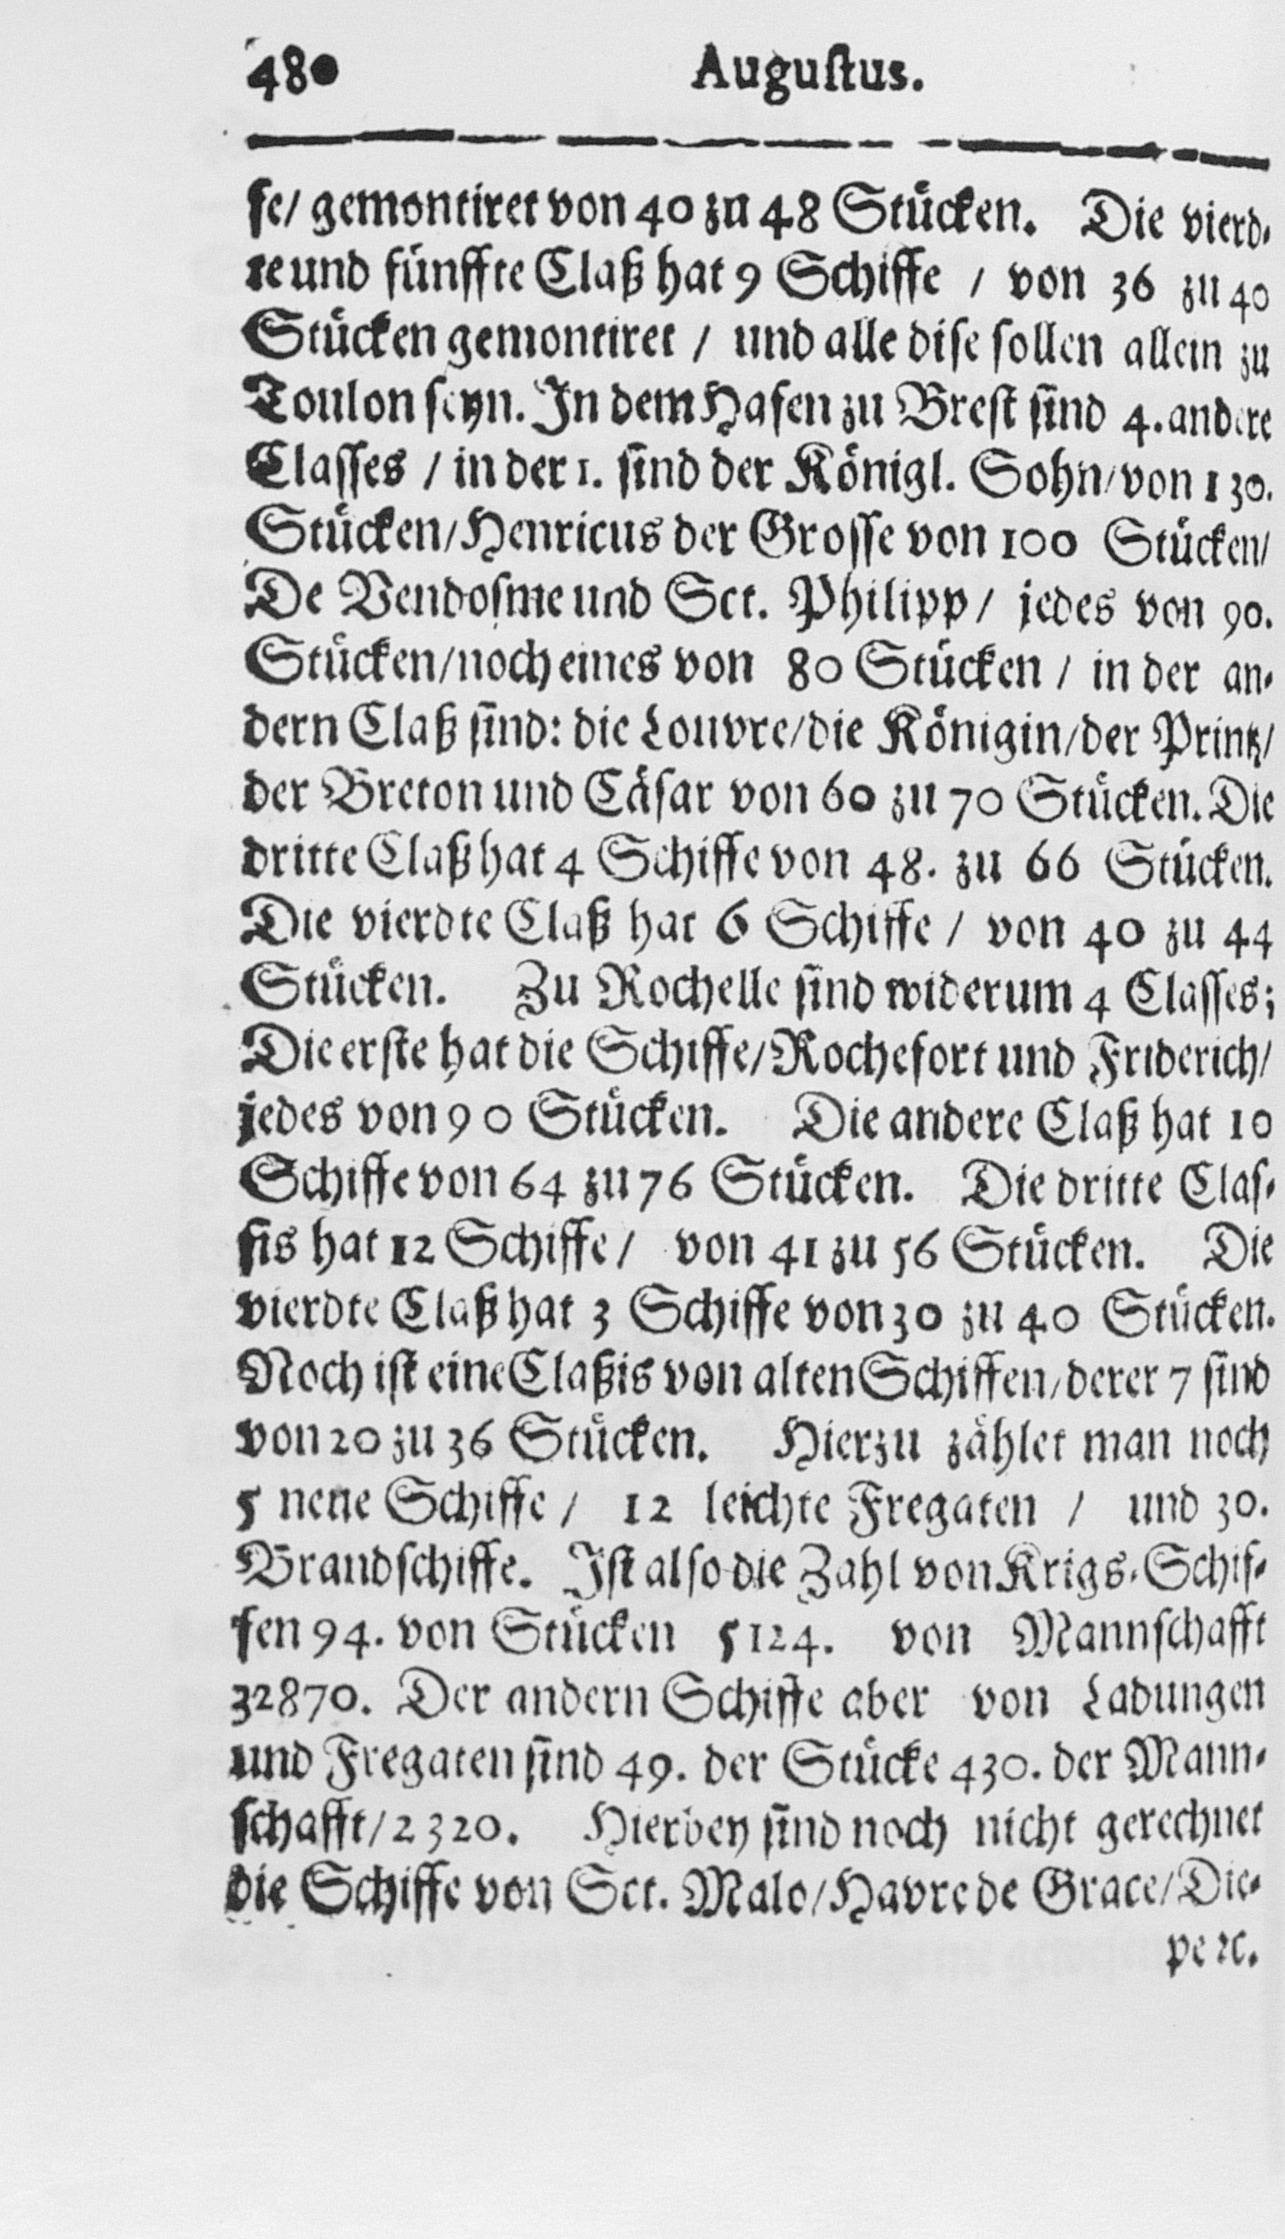 480 Augustus.
se/ gemontiret von 40 zu 48 Stücken. Die vierd-
te und fünffte Claß hat 9 Schiffe / von 36 zu 40
Stücken gemontiret / und alle dise sollen allein zu
Toulon seyn. In dem Hafen zu Brest sind 4. andere
Classes / in der 1. sind der Königl. Sohn/ von 130.
Stücken/ Henricus der Grosse von 100 Stücken/
De Vendosme und Sct. Philipp/ jedes von 90.
Stücken/ noch eines von 80 Stücken / in der an-
dern Claß sind: die Louvre/ die Königin/ der Printz/
der Breton und Cäsar von 60 zu 70 Stücken. Die
dritte Claß hat 4 Schiffe von 48. zu 66 Stücken.
Die vierdte Claß hat 6 Schiffe / von 40 zu 44
Stücken. Zu Rochelle sind widerum 4 Classes;
Die erste hat die Schiffe/ Rochefort und Friderich/
jedes von 90 Stücken. Die andere Claß hat 10
Schiffe von 64 zu 76 Stücken. Die dritte Clas-
sis hat 12 Schiffe / von 41 zu 56 Stücken. Die
vierdte Claß hat 3 Schiffe von 30 zu 40 Stücken.
Noch ist eine Claßis von alten Schiffen/ derer 7 sind
von 20 zu 36 Stücken. Hierzu zählet man noch
5 neue Schiffe / 12 leichte Fregaten / und 30.
Brandschiffe. Ist also die Zahl von Krigs-Schif-
fen 94. von Stücken 5124. von Mannschafft
32870. Der andern Schiffe aber von Ladungen
und Fregaten sind 49. der Stücke 430. der Mann-
schafft/ 2320. Hierbey sind noch nicht gerechnet
die Schiffe von Sct. Malo/ Havre de Grace/ Die-
pe ꝛc.